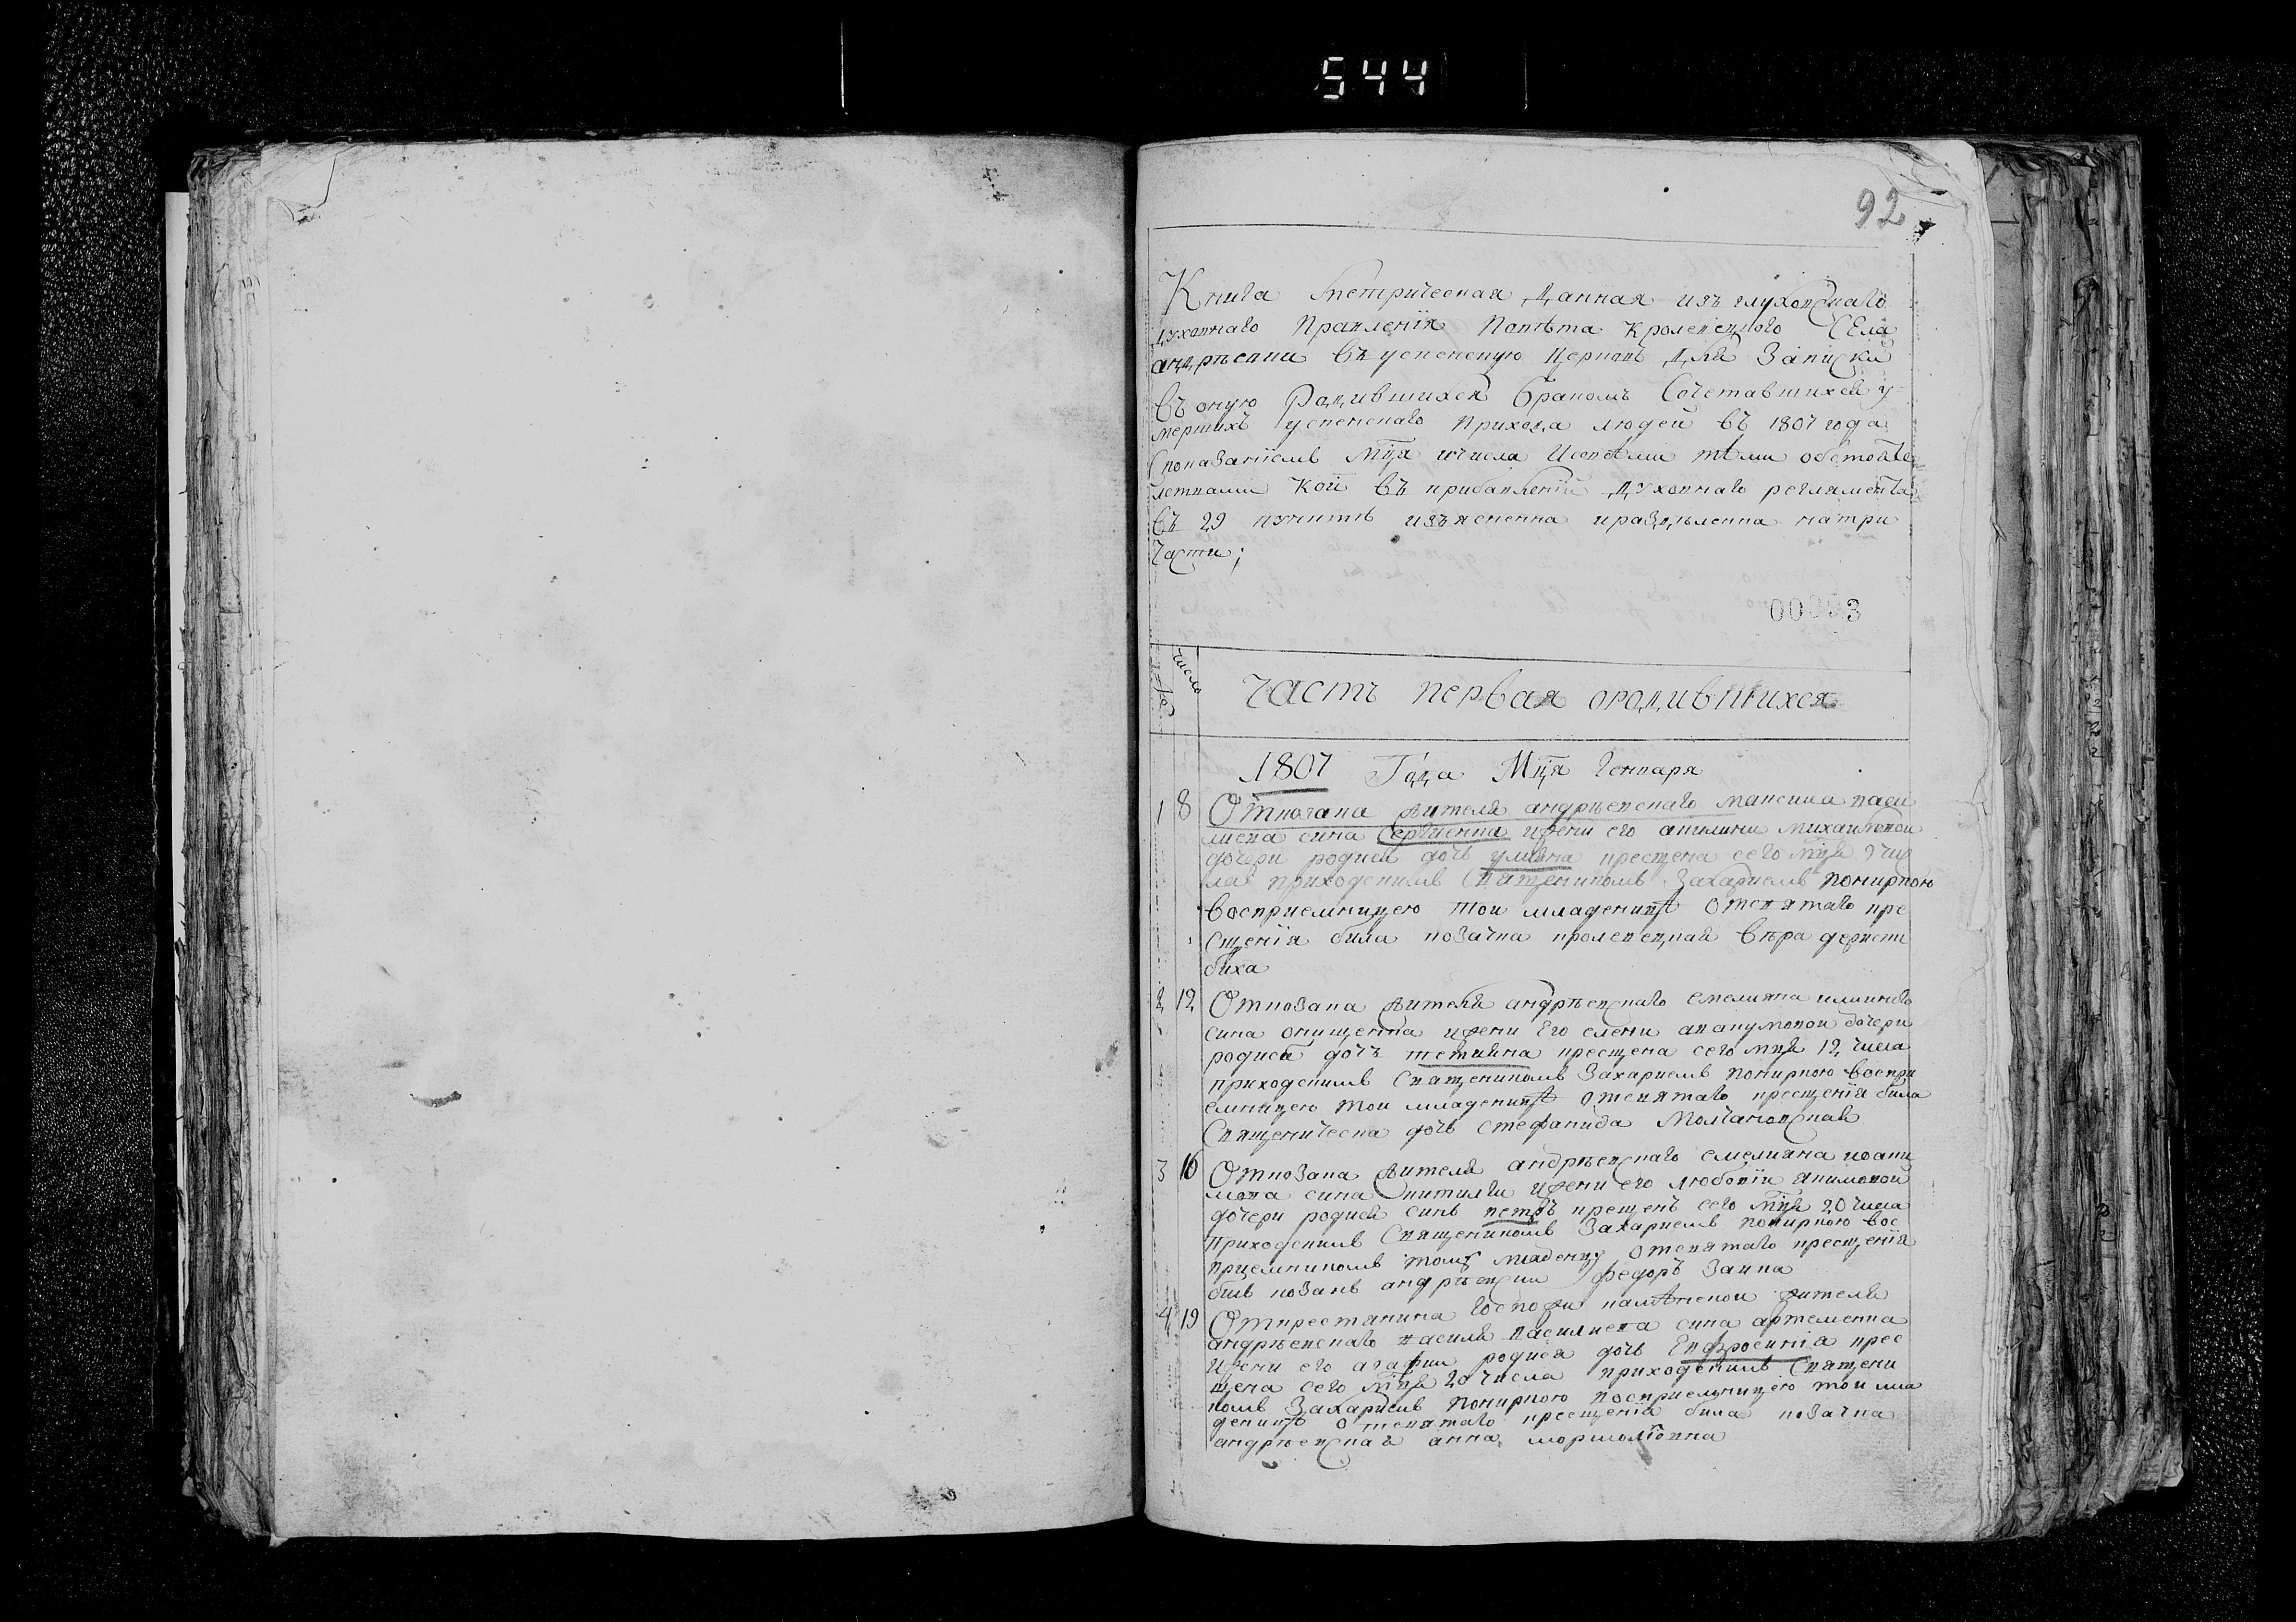 544
92
Книга Метрическая Данная изъ глуховскаго
духовнаго Правленія Повѣта Кролевецкого СЕла
андрѣевки въ успенскую Церковь Для Записки
въ оную Родившихся бракомъ Сочетавшихся у-
мершихъ успенскаго прихода людей въ 1807 года
Споказаніемъ Мца ичисла Исовсѣми тѣми обстояте
лствами кои въ прибавленіи Духовнаго регламента
въ 29 пунктѣ изъяснена ираздѣленна натри
Части;
00003
число
Часть первая ородившихся
1807 Года Мца Генваря
1 8 Откозака жителя андрѣевскаго максима васи
лиева сина Сергиенка ижени его акилини михаиловои
дочери родися дочь улияна крещена сего мца 9 чис
ла приходскимъ Священикомъ Захариемъ
восприемницею тои младеницѣ отсвятаго кре
щенія била козачка кролевецкая вѣра
биха
2 12 Откозака жителя андрѣевскаго емелияна
сина онищенка ижени Его елени дочери
родися дочъ тетияна крещена сего мца 12 числа
приходскимъ Священикомъ Захариемъ воспри
емницею тои младеницѣ отсвятаго крещенія била
Священическа дочь стефанида Молчановская
3 16 Откозака жителя андрѣевскаго емелияна
сина ижени его
дочери родися синъ петръ крещенъ сего мца 20 числа
приходскимъ Священикомъ Захариемъ вос
приемникомъ тому младенцу отсвятаго крещенія
билъ козакъ андрѣевски федоръ Заика
4 19 Открестянина госпожи жителя
андрѣевскаго василя василиева сина артеменка
ижени его агафии родися дочь Евфросинія крес
щена сего мца 20 числа приходскимъ Священи
комъ Захариемъ восприемницею тои мла
деницѣ отсвятаго крещенія била козачка
андрѣевская анна